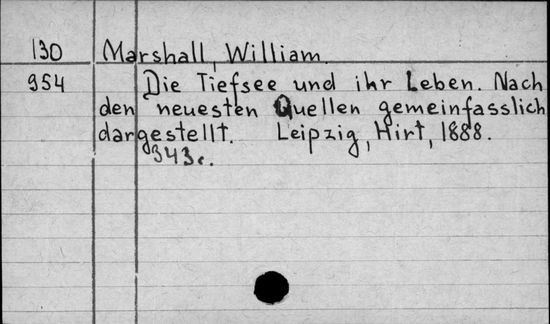 130 Marshall, William.
954 Die Tiefsee und ihr Leben. Nach
den neuesten Quellen gemeinfasslich
dargestellt. Leipzig, Hirt, 1888.
343 c.